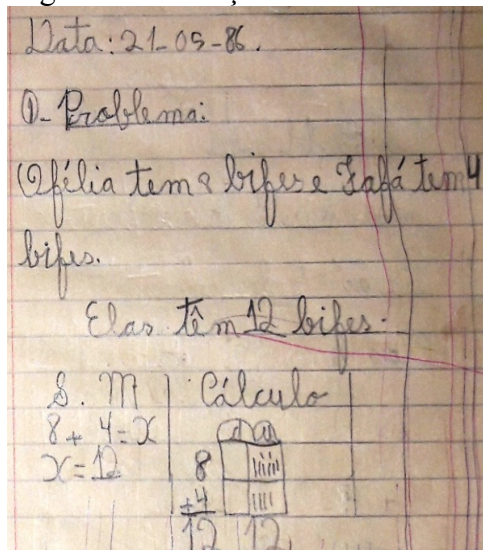 Data: 21-05-86.
1- Problema:
Ofélia tem 8 bifes e Fafá tem 4
bifes.
Elas têm 12 bifes.
S. M
8 + 4 = x
x = 12
Cálculo
d u
8
+4
12 12